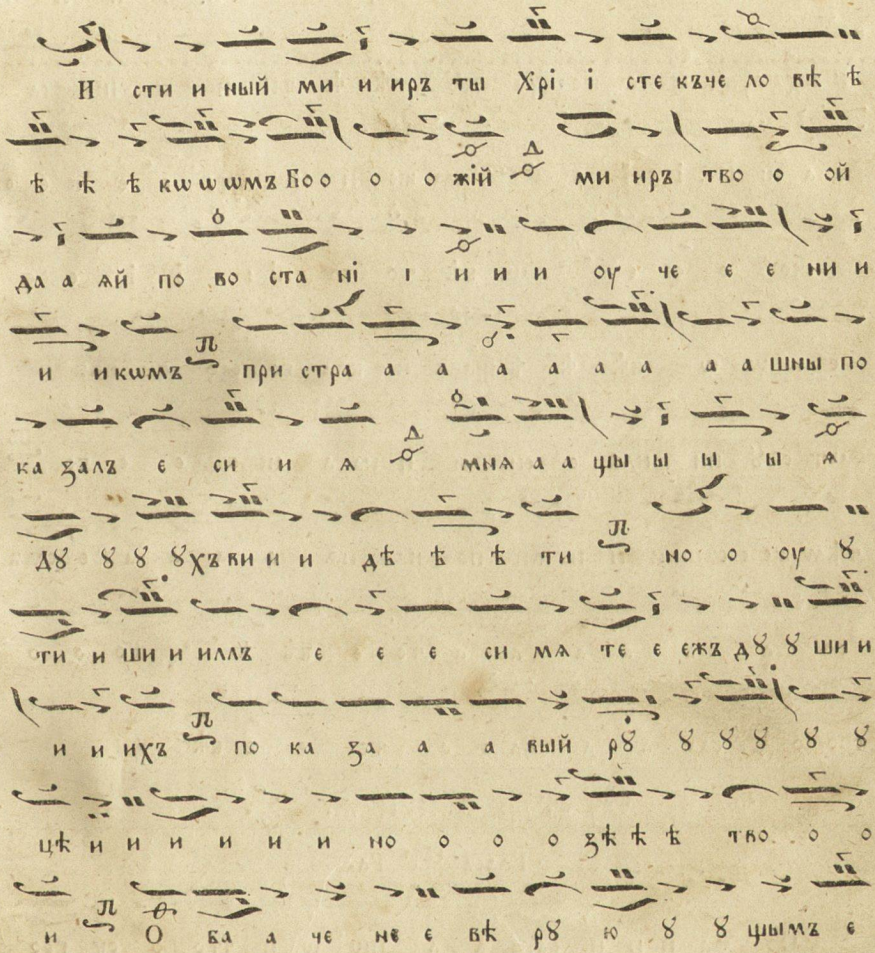 И сти и ный ми и иръ ты Хрі і сте къче ло вѣ ѣ
ѣ ѣ ѣ кѡ ѡ ѡмъ Боо о о жїй ми иръ тво о ой
да а ѧй по во ста ні і и и и оу че е е ни и
и икѡмъ при стра а а а а а а а а шны по
ка залъ е си и ѧ мнѧ а а щы ы ы ы ѧ
Дꙋ ꙋ ꙋ ꙋхъ ви и и дѣ ѣ ѣ ти но о оу ꙋ
ти и ши и иллъ е е е си мѧ те е ежъ дꙋ ꙋ ши и
и и ихъ по ка за а а вый рꙋ ꙋ ꙋ ꙋ ꙋ ꙋ
цѣ и и и и и и но о о о зѣ ѣ ѣ тво о о
и О ба а че не е вѣ рꙋ ю ꙋ ꙋ щымъ е